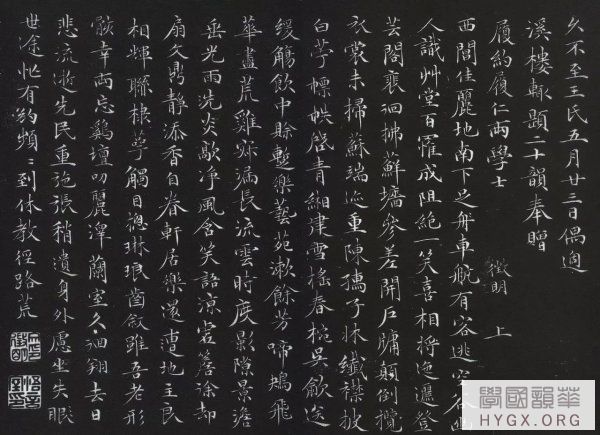 久不至王氏五月廿三日偶過
溪樓輙題二十韻奉贈
履約履仁兩學士
徵明 上
西閶佳麗地南下足舟車 有客逃空谷
人識艸堂百罹成阻絶一笑喜相將迤邐登
芸閣裵徊拂鮮墻參差開戶牖顛倒攬
衣裳未掃蘇端迹重陳孺子牀纖襟披
白苧幖帙啓青緗建雪搖春椀吳歈送
緩觴飲中賒蹔樂藝苑漱餘芳啼鴂飛
華盡荒雞 漏長流雲時度影隙景澹
垂光雨洗炎歊淨風含笑語涼虛簷涂却
扇文鼎靜添香自眷軒居樂還遭地主良
相輝聯棣萼觸目總琳琅齒敘雖吾老形
骸幸兩忘鷄壇叨麗澤蘭室久洄翔去日
悲流逝先民重弛張稍遺身外慮坐失
世途忙有約頻〻到休教徑路荒
華韻國學
HYGX.ORG